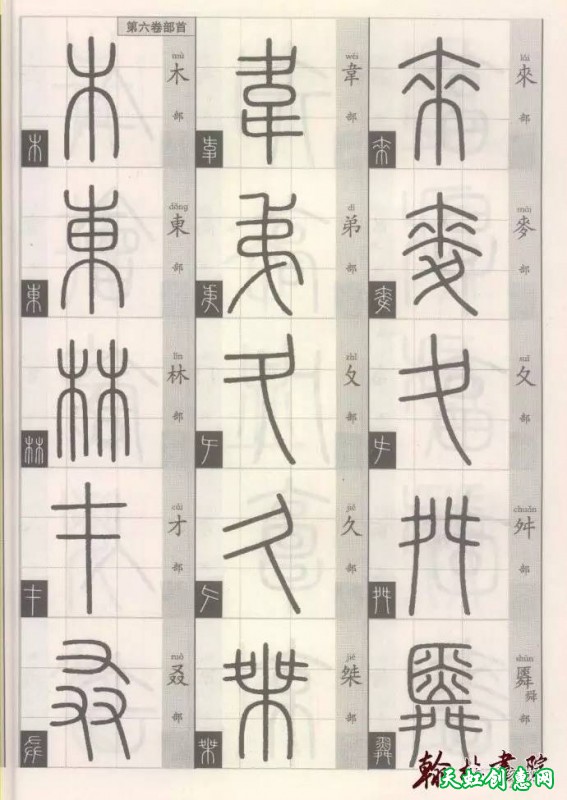 lái
來
部
mài
麥
部
suī
夊
部
chuǎn
舛
部
shùn
舜
部
wéi
韋
部
dì
弟
部
zhǐ
夂
部
久
部
jié
桀
部
第六卷部首
mù
木
部
dōng
東
部
lín
林
部
cái
才
部
ruò
叒
部
天虹创意网